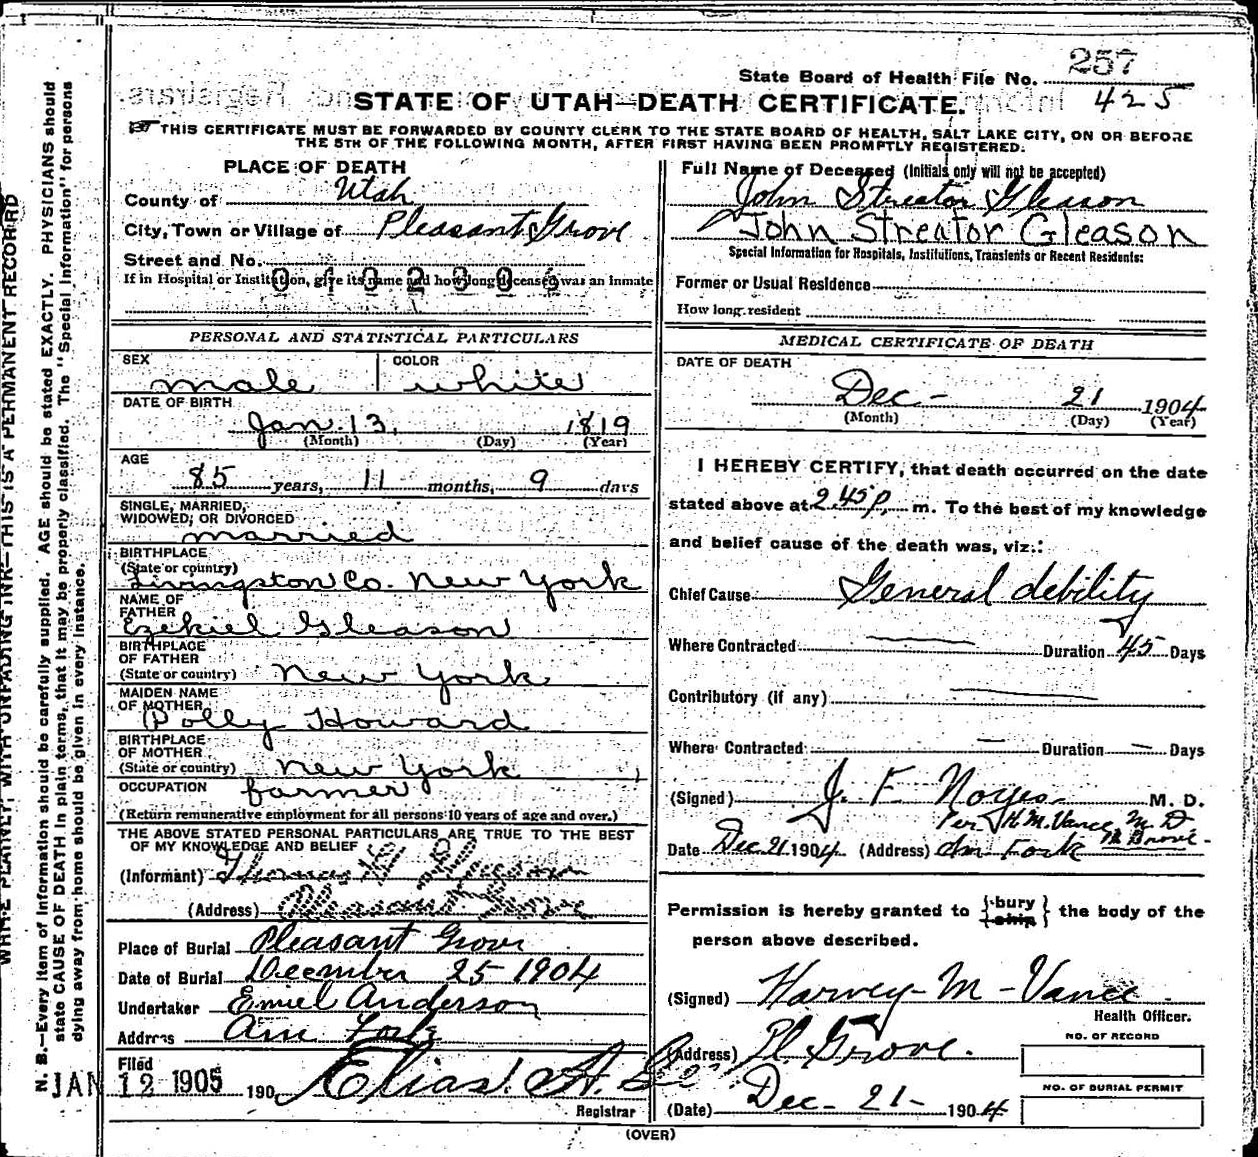 257
State Board of Health File No.
425
STATE OF UTAH—DEATH CERTIFICATE.
THIS CERTIFICATE MUST BE FORWARDED BY COUNTY CLERK TO THE STATE BOARD OF HEALTH, SALT LAKE CITY, ON OR BEFORE
THE 5TH OF THE FOLLOWING MONTH, AFTER FIRST HAVING BEEN PROMPTLY REGISTERED.
PLACE OF DEATH
County of Utah
City, Town or Village of Pleasant Grove
Street and No.
If in Hospital or Institution, give its name and how long deceased was an inmate
Full Name of Deceased (Initials only will not be accepted)
John Streator Gleason
John Streator Gleason
Special Information for Hospitals, Institutions, Transients or Recent Residents:
Former or Usual Residence
How long resident
PERSONAL AND STATISTICAL PARTICULARS
SEX male COLOR white
DATE OF BIRTH
Jan. 13, 1819
(Month) (Day) (Year)
AGE
85 years, 11 months, 9 days
SINGLE, MARRIED,
WIDOWED, OR DIVORCED
married
BIRTHPLACE
(State or country)
Livingston Co. New York
NAME OF
FATHER
Ezekiel Gleason
BIRTHPLACE
OF FATHER
(State or country) New York
MAIDEN NAME
OF MOTHER
Polly Howard
BIRTHPLACE
OF MOTHER
(State or country) New York
OCCUPATION farmer
(Return remunerative employment for all persons 10 years of age and over.)
THE ABOVE STATED PERSONAL PARTICULARS ARE TRUE TO THE BEST
OF MY KNOWLEDGE AND BELIEF
(Informant) Thomas
(Address) Pleasant Grove
Place of Burial Pleasant Grove
Date of Burial December 25 1904
Undertaker Emiel Anderson
Address Am Fork
Filed
JAN 12 1905 190
Elias A.
Registrar
MEDICAL CERTIFICATE OF DEATH
DATE OF DEATH
Dec - 21 1904
(Month) (Day) (Year)
I HEREBY CERTIFY, that death occurred on the date
stated above at 2.45 p. m. To the best of my knowledge
and belief cause of the death was, viz.:
Chief Cause General debility
Where Contracted Duration 45 Days
Contributory (if any)
Where Contracted — Duration — Days
(Signed) J. F. Noyes M. D.
Per H. M. Vance M D
Date Dec. 21 1904 (Address) Am Fork Pl Grove
Permission is hereby granted to {bury
ship} the body of the
person above described.
(Signed) Harvey - M - Vance
Health Officer.
(Address) Pl Grove.
NO. OF RECORD
NO. OF BURIAL PERMIT
(Date) Dec - 21 - 1904
(OVER)
WRITE PLAINLY, WITH UNFADING INK—THIS IS A PERMANENT RECORD
N. B.—Every item of information should be carefully supplied. AGE should be stated EXACTLY. PHYSICIANS should
state CAUSE OF DEATH in plain terms, that it may be properly classified. The "Special Information" for persons
dying away from home should be given in every instance.